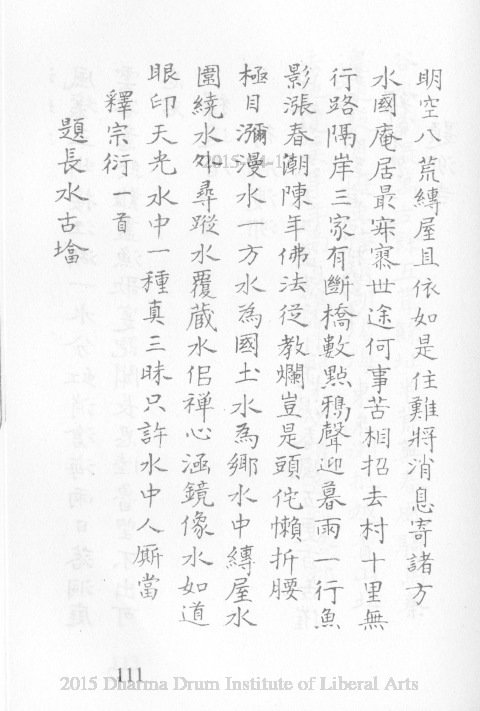 明空八荒縛屋且依如是住難將消息寄諸方
水國庵居最寂寥世途何事苦相招去村十里無
行路隔岸三家有斷橋數點鴉聲迎暮雨一行魚
影漲春潮陳年佛法從教爛豈是頭佗懶折腰
極目瀰漫水一方水為國土水為鄉水中縛屋水
圍繞水外尋蹤水覆藏水侶禪心涵鏡像水如道
眼印天光水中一種真三昧只許水中人廝當
釋宗衍一首
題長水古墖
111
2015 Dharma Drum Institute of Liberal Arts